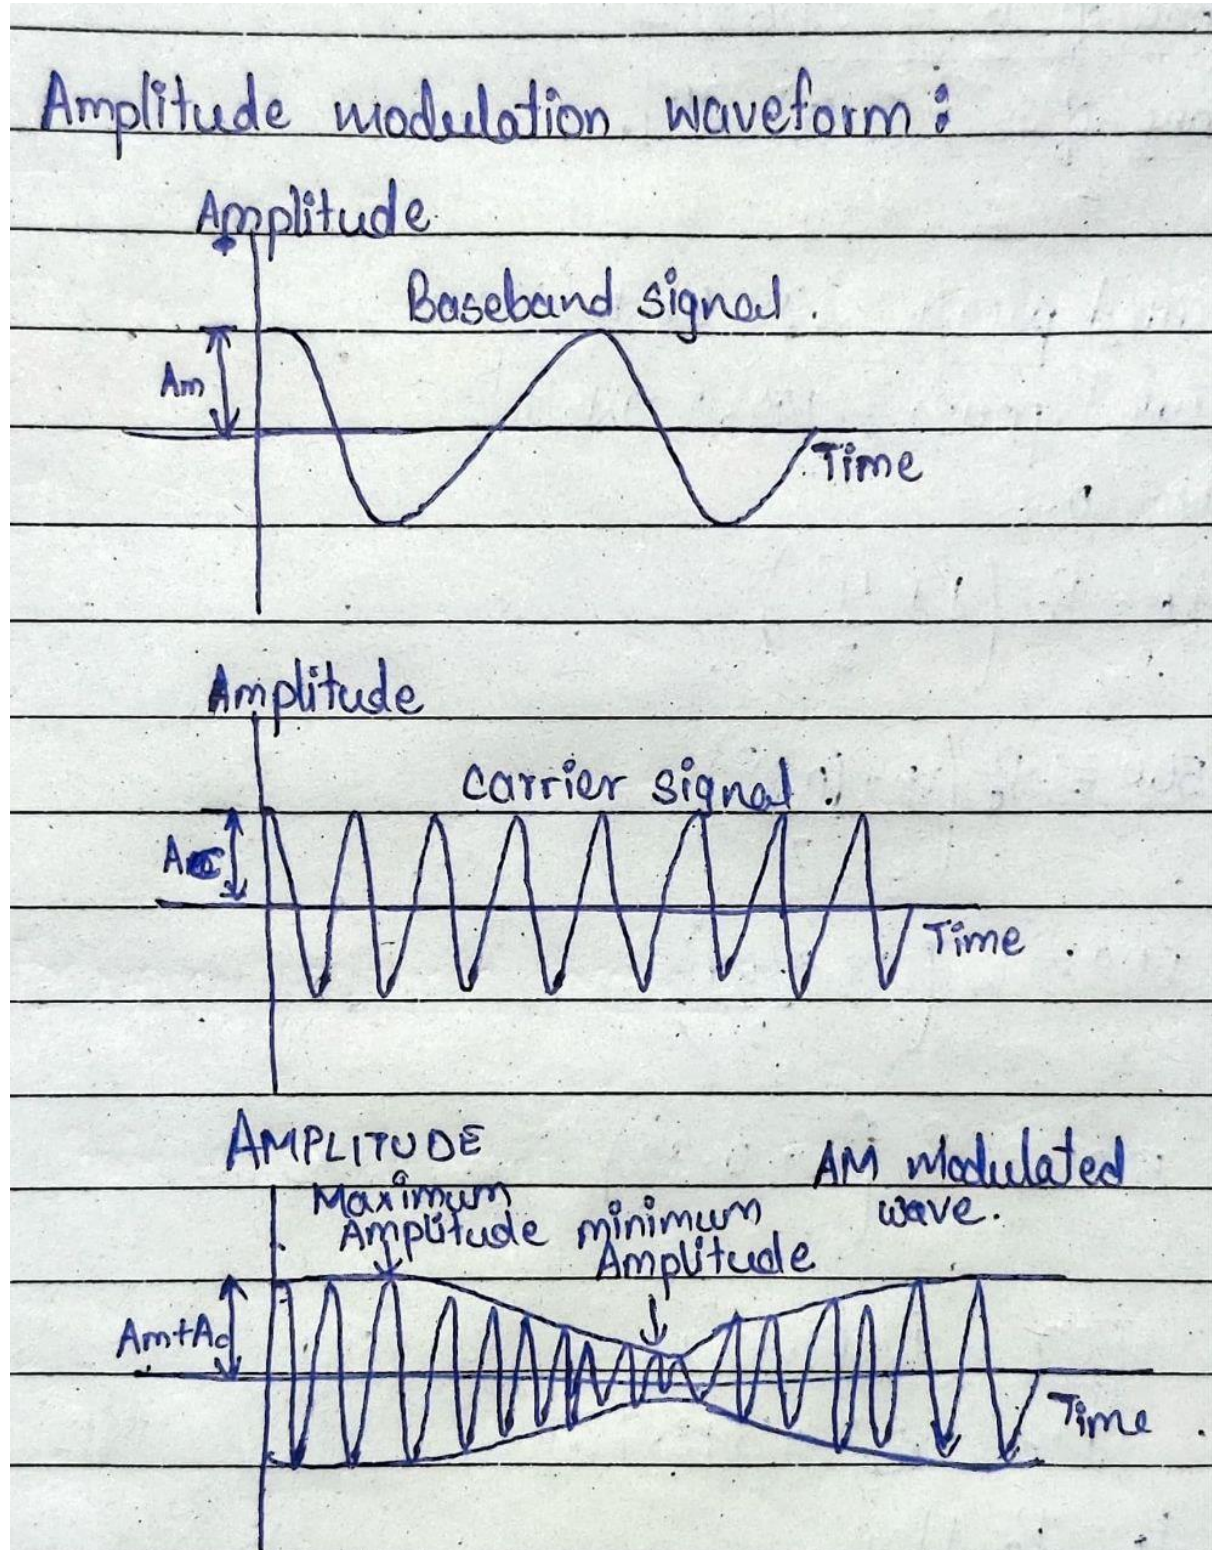 Amplitude modulation waveform:
Amplitude
Baseband signal.
Am
Time
Amplitude
carrier signal:
Ac
Time.
AMPLITUDE
AM modulated
wave.
Maximum
Amplitude
minimum
Amplitude
Am+Ac
Time.